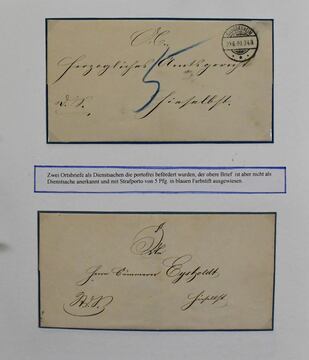 An
Herzogliches Amtsgericht
5
hieselbst.
Zwei Ortsbriefe als Dienstsachen die portofrei befördert wurden, der obere Brief ist aber nicht als
Dienstsache anerkannt und mit Strafporto von 5 Pfg. in blauen Farbstift ausgewiesen.
Herrn
hieselbst